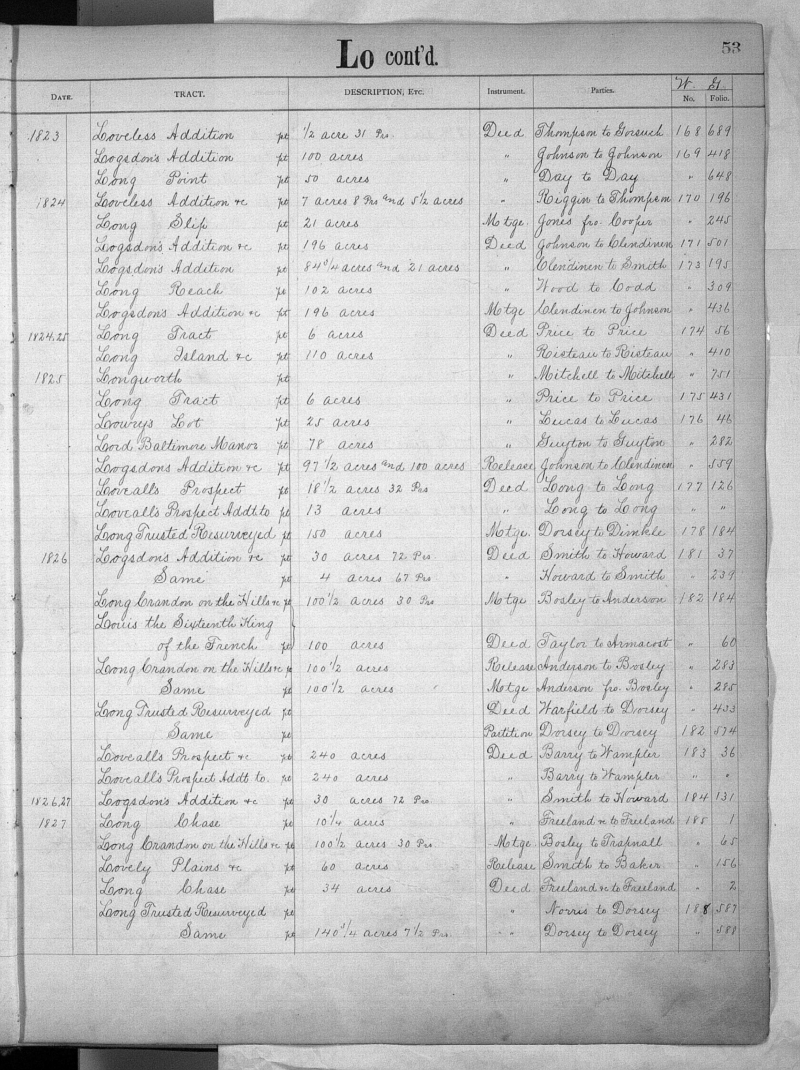 Lo cont'd.
53
W. G.
DATE. TRACT. DESCRIPTION, ETC. Instrument. Parties. No. Folio.
1823 Loveless Addition pt 1/2 acre 31 Prs Deed Thompson to Gorsuch 168 689
Logsdon's Addition pt 100 acres " Johnson to Johnson 169 418
Long Point pt 50 acres " Day to Day " 648
1824 Loveless Addition &c pt 7 acres 8 Prs and 5 1/2 acres " Riggin to Thompson 170 196
Long Slip pt 21 acres Mtge. Jones fro. Cooper " 245
Logsdon's Addition &c pt 196 acres Deed Johnson to Clendinen 171 501
Logsdon's Addition pt 84 3/4 acres and 21 acres " Clendinen to Smith 173 195
Long Reach pt 102 acres " Wood to Codd " 309
Logsdon's Addition &c pt 196 acres Mtge Clendinen to Johnson " 436
1824,25 Long Tract pt 6 acres Deed Price to Price 174 56
Long Island &c pt 110 acres " Risteau to Risteau " 410
1825 Longworth pt " Mitchell to Mitchell " 751
Long Tract pt 6 acres " Price to Price 175 431
Lowrys Lot pt 25 acres " Lucas to Lucas 176 46
Lord Baltimore Manor pt 78 acres " Guyton to Guyton " 282
Logsdons Addition &c pt 97 1/2 acres and 100 acres Release Johnson to Clendinen " 559
Lovealls Prospect pt 18 1/2 acres 32 Prs Deed Long to Long 177 126
Loveall's Prospect Addt. to pt 13 acres " Long to Long " "
Long Trusted Resurveyed pt 150 acres Mtge. Dorsey to Dimkle 178 184
1826 Logsdon's Addition &c pt 30 acres 72 Prs Deed Smith to Howard 181 37
Same pt 4 acres 67 Prs " Howard to Smith " 239
Long Crandon on the Hills &c pt 100 1/2 acres 30 Prs Mtge Bosley to Anderson 182 184
Louis the Sixteenth King
of the French pt 100 acres Deed Taylor to Armacost " 60
Long Crandon on the Hills &c pt 100 1/2 acres Release Anderson to Bosley " 283
Same pt 100 1/2 acres Mtge Anderson fro. Bosley " 285
Long Trusted Resurveyed pt Deed Warfield to Dorsey " 433
Same pt Partition Dorsey to Dorsey 182 574
Loveall's Prospect &c pt 240 acres Deed Barry to Wampler 183 36
Loveall's Prospect Addt to. pt 240 acres " Barry to Wampler " "
1826,27 Logsdon's Addition &c pt 30 acres 72 Prs " Smith to Howard 184 131
1827 Long Chase pt 10 1/4 acres " Freeland &c to Freeland 185 1
Long Crandon on the Hills &c pt 100 1/2 acres 30 Prs Mtge Bosley to Trapnall " 65
Lovely Plains &c pt 60 acres Release Smith to Baker " 156
Long Chase pt 34 acres Deed Freeland &c to Freeland " 2
Long Trusted Resurveyed pt " Norris to Dorsey 188 587
Same pt 140 3/4 acres 7 1/2 Prs " Dorsey to Dorsey " 588